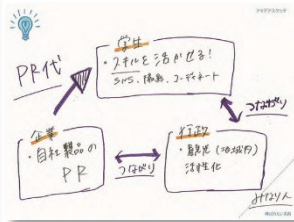 アイデアスケッチ
PR代
学生
・スキルを活かせる!
SNS、撮影、コーディネート
つながり
企業
・自社製品の
PR
つながり
行政
・観光(地域内)
活性化